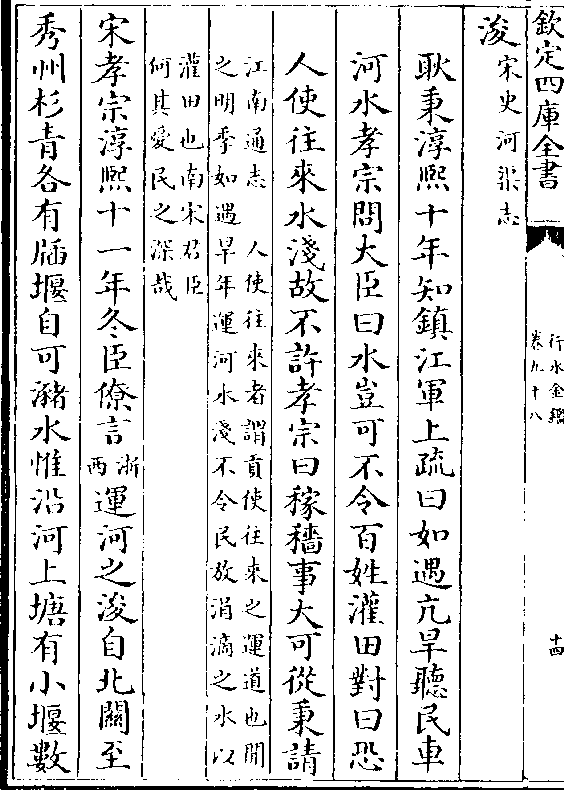 欽定四庫全書
行水金鑑
卷九十八
十四
浚宋史河渠志
耿秉淳熙十年知鎮江軍上疏曰如遇亢旱聽民車
河水孝宗問大臣曰水豈可不令百姓灌田對曰恐
人使往來水淺故不許孝宗曰稼穡事大可從秉請
江南通志　人使往來者謂貢使往來之運道也聞
之明季如遇旱年運河水淺不令民放涓滴之水以
灌田也南宋君臣
何其愛民之深哉
宋孝宗淳熙十一年冬臣僚言浙西運河之浚自北關至
秀州杉青各有牐堰自可瀦水惟沿河上塘有小堰數